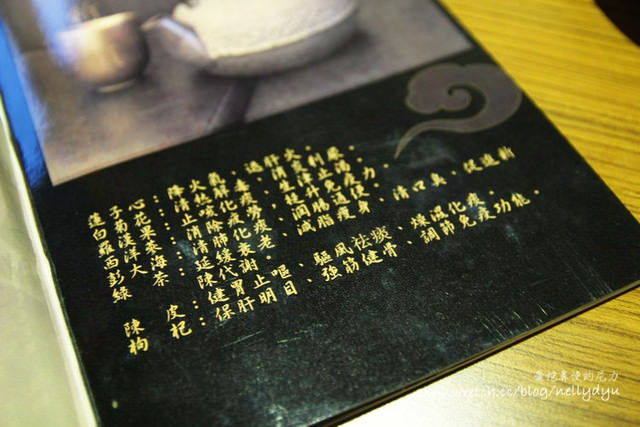 蓮子心：降火氣、退肝火。
白菊花：清熱解毒、
羅漢果：止咳化痰、生津止渴。
西洋參：消除疲勞、提升免疫力。
彭大海：清肺化痰、潤腸通便。
綠茶：延緩衰老、減脂瘦身、清口臭、促進新
陳代謝。
陳皮：健胃止嘔、驅風祛痰、燥濕化痰。
枸杞：保肝明目、強筋健骨、調節免疫功能。
wretch.cc/blog/nellydyu